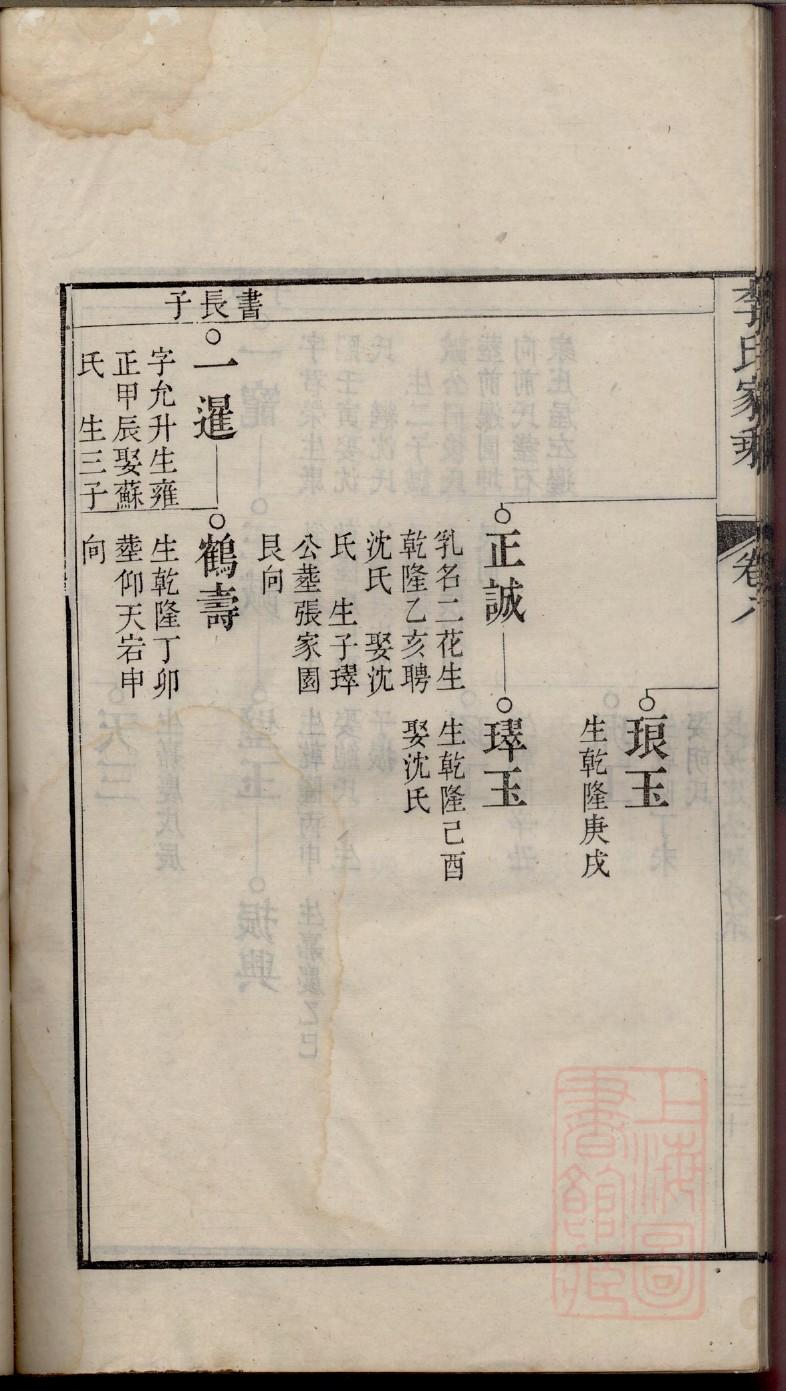 李氏家乘
卷六
琅玉
生乾隆庚戌
正誠
乳名二花生
乾隆乙亥聘
沈氏 娶沈
氏 生子琒
公塟張家園
艮向
琒玉
生乾隆己酉
娶沈氏
書長子
一暹
字允升生雍
正甲辰娶蘇
氏 生三子
鶴壽
生乾隆丁卯
塟仰天岩申
向
上海圖書館藏